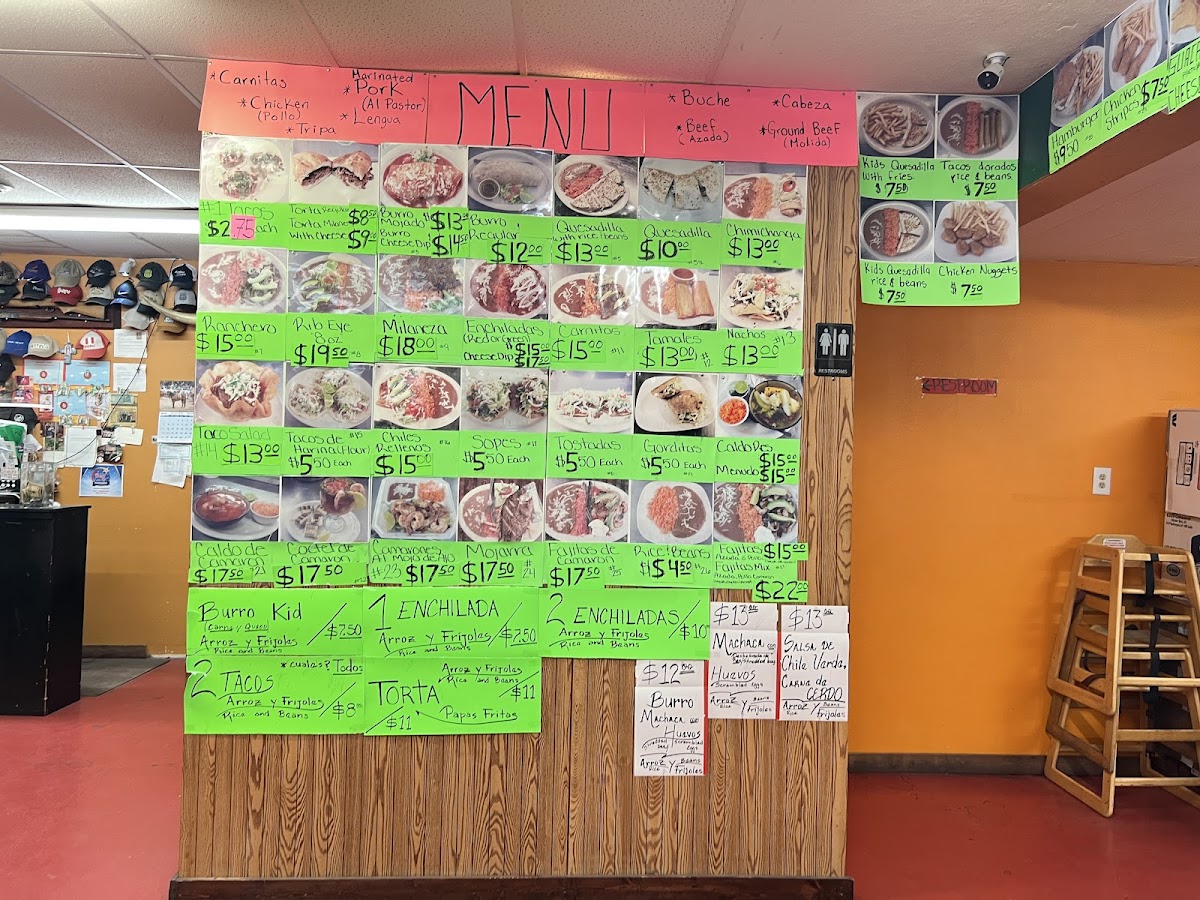 *Carnitas
*Chicken
(Pollo)
*Tripa
Marinated
*Pork
(Al Pastor)
*Lengua
MENU
*Buche
*Beef
(Azada)
*Cabeza
*Ground Beef
(Molida)
#1 Tacos
$2.75 Each
Torta
$8.50
With Cheese $9
Burro
Mojado $13
Burro
Cheese Dip $14.50
Burro
Regular
$12.00
Quesadilla
with rice & beans
$13.00
Quesadilla
$10.00
Chimichanga
$13.00
Ranchero
$15.00 #7
Rib Eye
8oz
$19.50 #8
Milaneza
$18.00 #9
Enchiladas
(Red or Green)
$15.00
Cheese Dip $17.50
Carnitos
$15.00 #11
Tamales
$13.00 #12
Nachos #13
$13.00
Taco Salad
#14 $13.00
Tacos de #15
Harina (Flour)
$5.50 Each
Chiles #16
Rellenos
$15.00
Sopes
$5.50 Each
Tostadas
$5.50 Each
Gorditas
$5.50 Each
Caldo Res
$15.00
Menudo $15.00
Caldo de
Camaron
$17.50
Coctel de
Camaron
$17.50
Camarones
Mojo de Ajo
#23 $17.50
Mojarra
$17.50 #24
Fajitas de
Camaron
$17.50 #25
Rice/Beans
$4.50 #26
Fajitas $15.00
Fajitas Mix
$22.00
Burro Kid
Carne y Queso
Arroz y Frijoles
Rice and Beans
/$7.50
1 ENCHILADA
Arroz y Frijoles
Rice and Beans
/$7.50
2 ENCHILADAS
Arroz y Frijoles
Rice and Beans
/$10
*cualas? Todos
2 TACOS
Arroz y Frijoles
Rice and Beans
/$8.00
Arroz y Frijoles
Rice and Beans
$11
TORTA
/$11
Papas Fritas
$12.00
Burro
Machaca con
Huevos
Shredded beef
Scrambled eggs
Arroz y Beans
Rice Frijoles
$13.00
Machaca con
Huevos
Scrambled eggs
Arroz y Beans
Rice frijoles
$13.00
Salsa de
Chile Varde,
Carna de
CERDO
Arroz y Beans
Rice frijoles
Kids Quesadilla
With fries
$7.50
Tacos dorados
rice & beans
$7.50
Kids Quesadilla
rice & beans
$7.50
Chicken Nuggets
$7.50
Hamburger
$9.50
Chicken
Stripes $7.50
RESTROOMS
RESTROOM